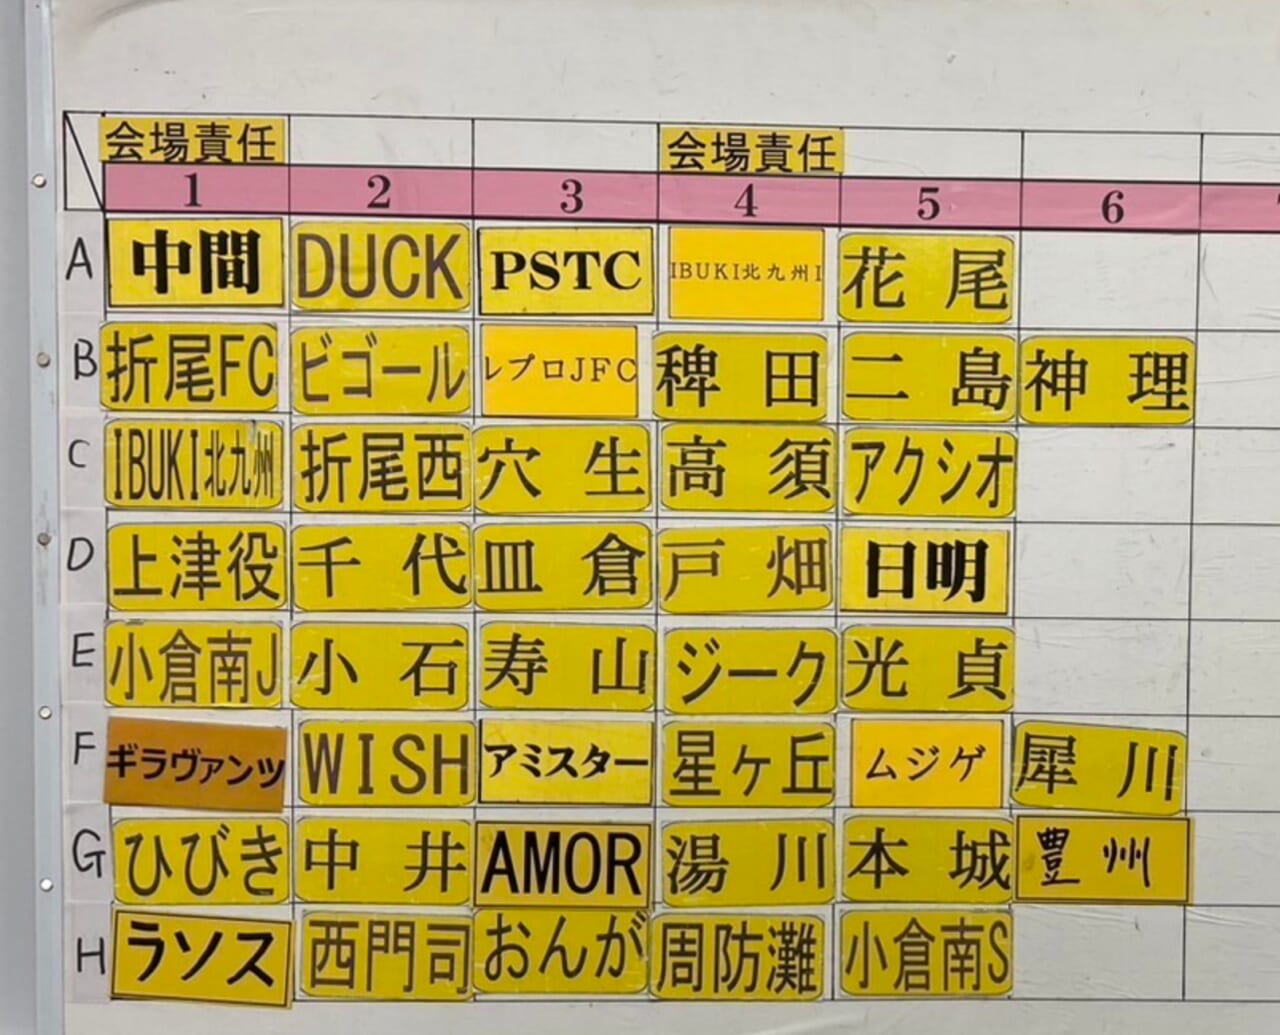 会場責任 会場責任
1 2 3 4 5 6
A 中間 DUCK PSTC IBUKI北九州I 花尾
B 折尾FC ビゴール レプロJFC 稗田 二島 神理
C IBUKI北九州 折尾西 穴生 高須 アクシオ
D 上津役 千代 皿倉 戸畑 日明
E 小倉南J 小石 寿山 ジーク 光貞
F ギラヴァンツ WISH アミスター 星ヶ丘 ムジゲ 犀川
G ひびき 中井 AMOR 湯川 本城 豊州
H ラソス 西門司 おんが 周防灘 小倉南S